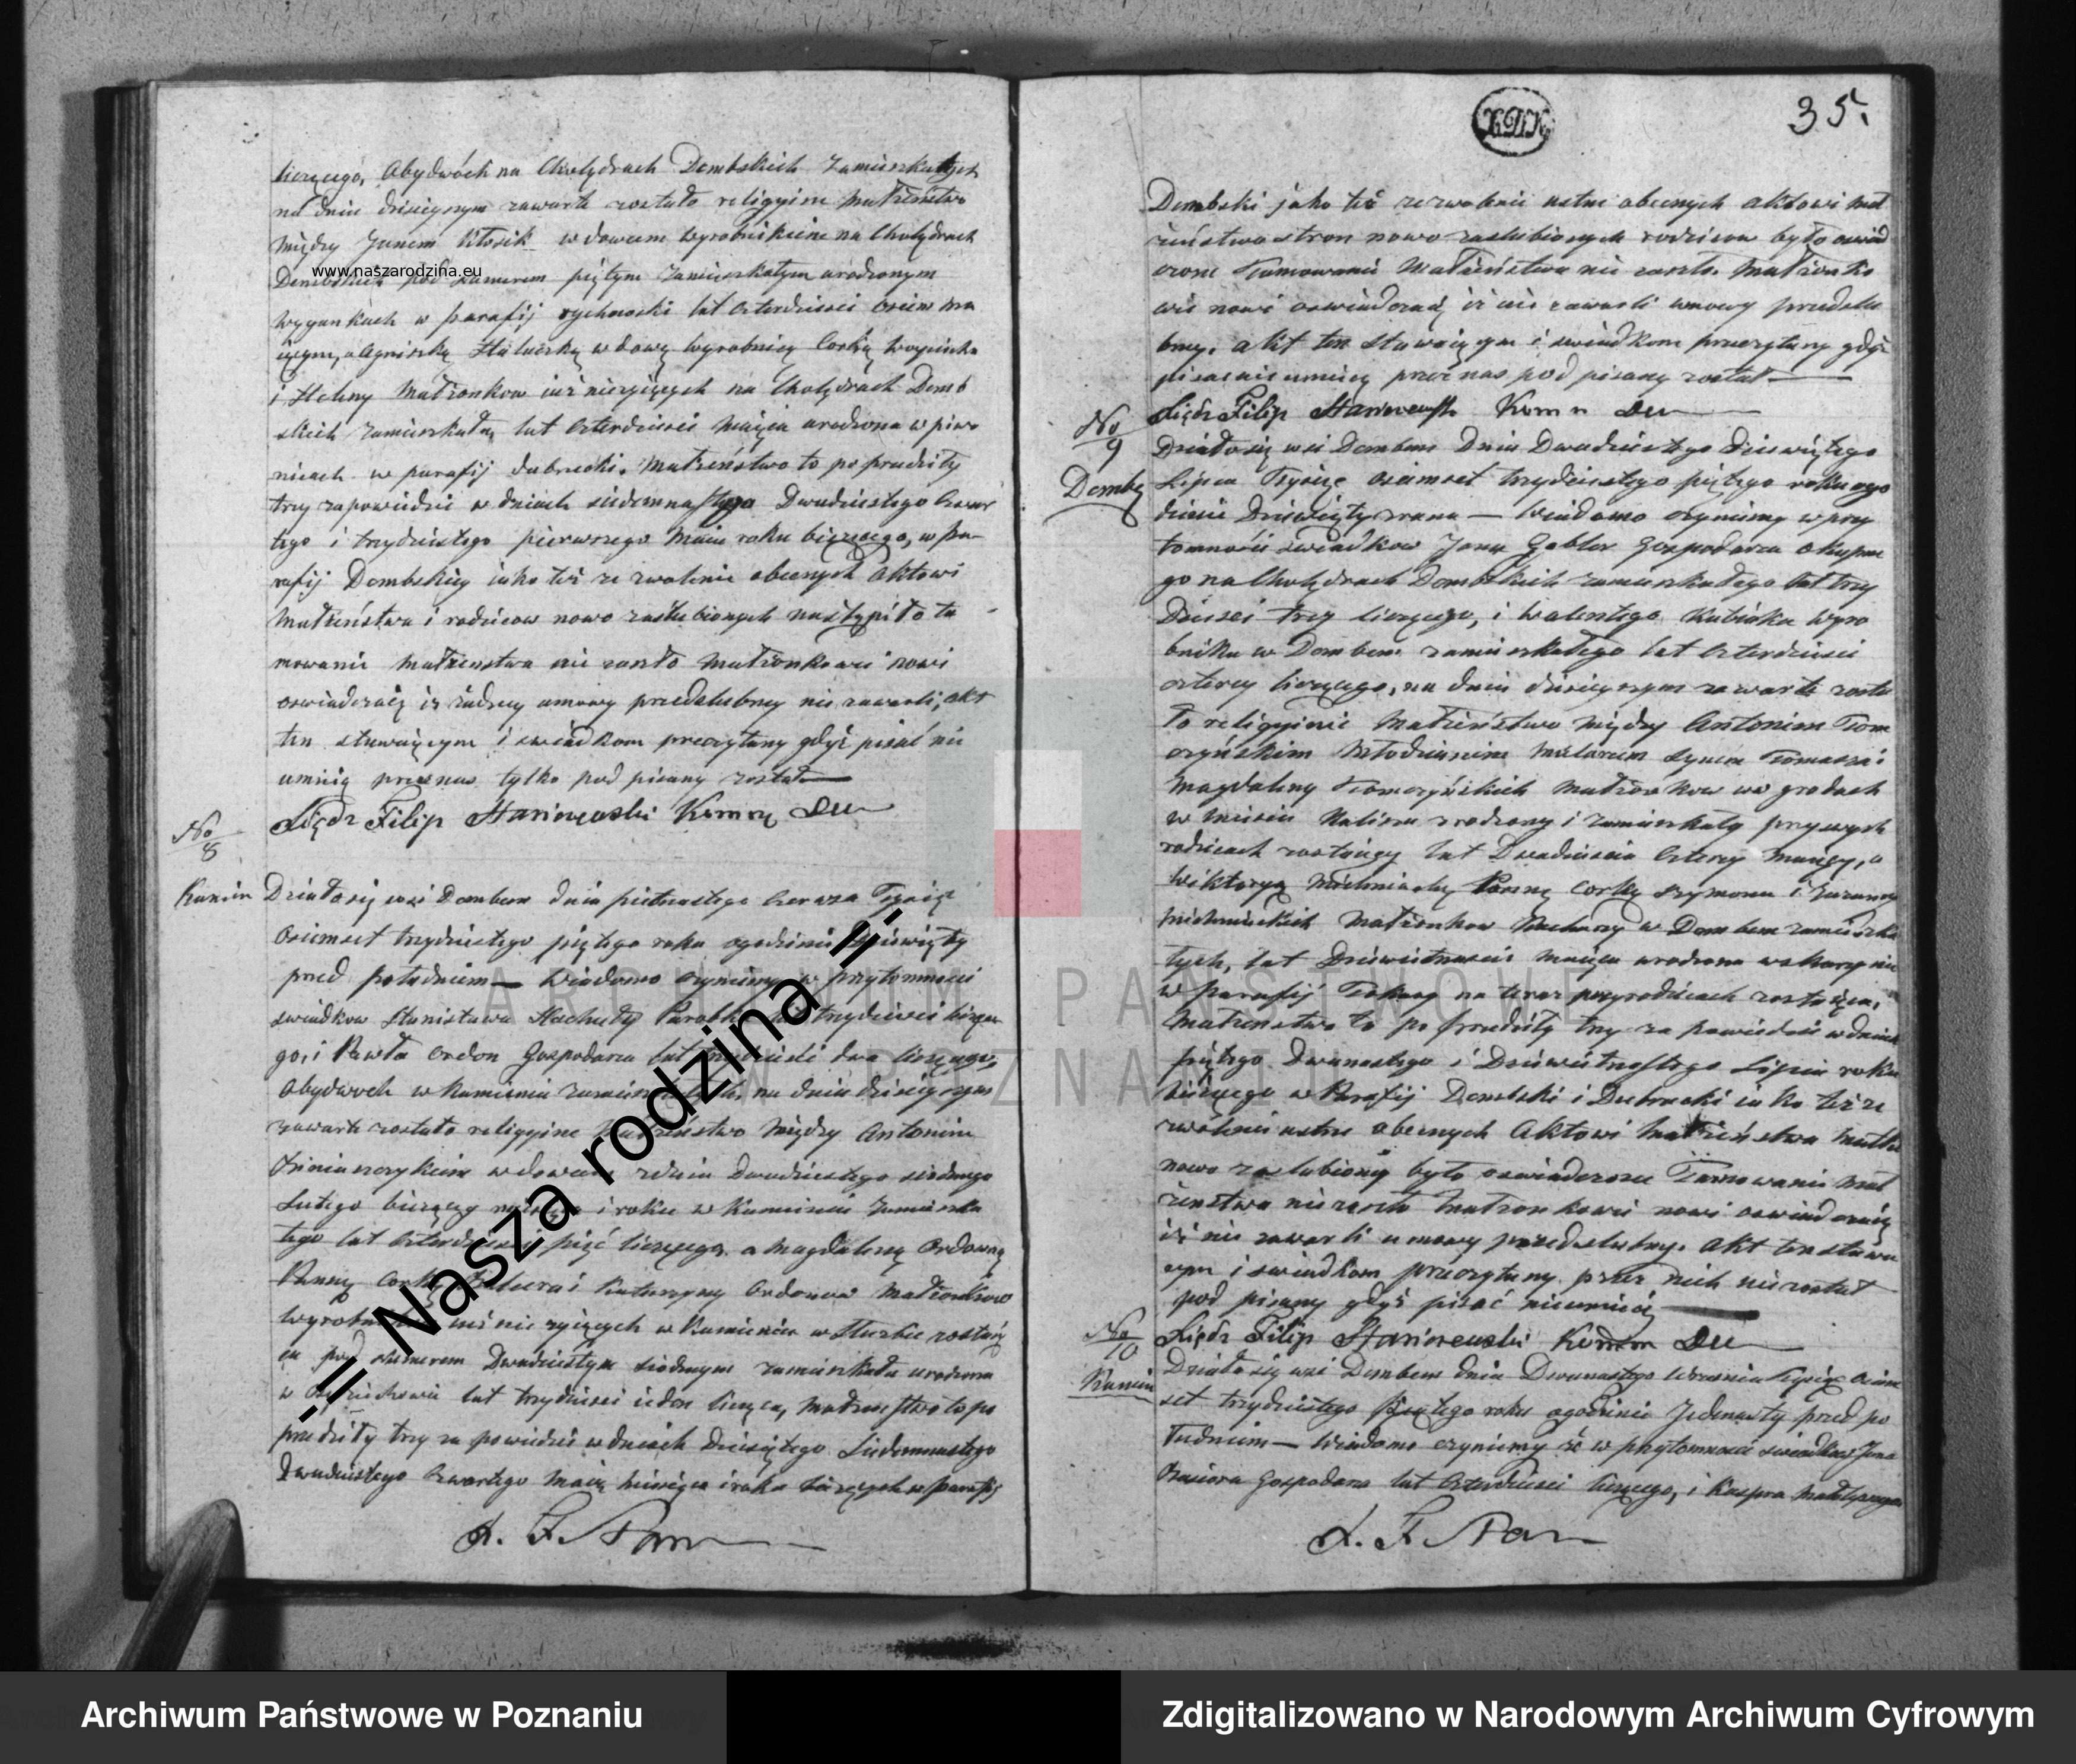 liczącego, Obydwóch na Cholędrach Dembskich Zamieszkałych
na dniu dzisieyszym zawarte zostało religiyine Małżeństwo
między Janem Kłosik wdowcem wyrobnikiem na Cholędrach
www.naszarodzina.eu
Dembskich pod Numerem piętym zamieszkałym urodzonym
w parafij rychwoski lat czterdzieści osiem ma
iącym, a Agniszką wdową wyrobnicą Corką Woyciecha
i Heleny Małżonkow iuż nieżyiących na Cholędrach Demb
skich zamieszkałą, lat czterdzieści maiąca urodzona w piwo
nicach w parafij dobrzecki. Małżeństwo to poprzedziły
trzy zapowiedzi w dniach siedemnastego Dwudziestego Czwar
tego i trzydziestego pierwszego Maia roku bieżącego, w Pa-
rafij Dembskiey iako też ze zwolenie obecnych Aktowi
Małżeństwa i rodzicow nowo zaślubionych nastąpiło ta
mowanie małżenstwa nie zaszło Małżonkowie nowi
oswiadczaią iż żadney umowy przedslubney nie zawarli, akt
ten stawaiącym i swiadkom przeczytany gdyż pisać nie
umieią przeznas tylko pod pisany został
Xiądz Filip Stariszewski Komrz
No 8
Kamień Działo się wsi Dembem dnia pietnastego Czerwca Tysiąc
Osiemset trzydziestego piątego roku ogodzinie Dziewiąty
przed południem — Wiadomo czyniemy w przytomnosci
swiadkow Stanisława Parobka lat trzydzieści liczące
go, i Pawła Ordon Gospodarza lat trzydzieści dwa liczącego,
Obydwoch w Kamieniu zamieszkałych, na dniu dzisieyszym
zawarte zostało religiyine Małżeństwo między Antonim
wdowcem zdnia Dwudziestego siodmego
Lutego bieżący i roku w Kamieniu Zamieszka
łego lat czterdzieści pięć liczącego a Magdaleną Ordowną
Panną Corką i Katarzyny Ordonow Małżonkow
iuż nie żyiących w Kamieniu w Służbie zostaią
ca pod Numerem Dwudziestym siodmym zamieszkała urodzona
w lat trzydzieści ieden licząca, Małżeństwo to po
przedziły trzy zapowiedzi w dniach Dziesiątego Siedemnastego
Dwudziestego Czwartego Maia miesiąca i roku bieżących w parafij
X. F. Star
35.
Dembski jako też zezwolenie ustne obecnych aktowi mał
żeństwa stron nowo zaslubionych rodzicow było oswiad
czone Tamowanie Małżeństwa nie zaszło. Małżonko
wie nowi oswiadczaią iż nie zawarli umowy przedslu
bney. akt ten stawaiącym i swiadkom przeczytany gdyż
pisac nie umieią przez nas pod pisany został
Xiądz Filip Stariszewski Komn
No 9
Dembe
Działo się wsi Dembem Dnia Dwudziestego dziewiątego
Lipca Tysiąc osiemset trzydziestego piątego roku ogo
dzinie Dziewiąty zrana — Wiadomo czyniemy w przy
tomności swiadkow Jana Gabler Gospodarza okupne
go na Cholędrach Dembskich zamieszkałego lat trzy
dzieści trzy liczącego, i Walentego Kubiaka Wyro
bnika w Dembem zamieszkałego lat czterdzieści
cztery liczącego, na dniu dzisieyszym zawarte zosta
ło religiyine Małżeństwo między Antonim Tom
czyńskim Młodzianem Malarzem Synem Tomasza i
Magdaleny Tomczyńskich Małżonkow
w Miescie Kaliszu zrodzony i zamieszkały przyswych
rodzicach zostaiący lat Dwadzieścia Cztery maiący, a
Wiktoryą Michniacką Panną corką Szymona i Zuzanny
Michniackich Małżonkow w Dembem zamieszka
łych, lat Dziewietnascie maiąca urodzona
w parafij Tokary na teraz przyrodzicach zostaiąca.
Małżenstwo to poprzedziły trzy zapowiedzi w dniach
piątego Dwunastego i Dziewietnastego Lipca roku
bieżącego w Parafij Dembski i Dobrzecki iako też ze
zwolenie ustne obecnych Aktowi Małżeństwa Matki
nowo zaslubioney było oswiadczone Tamowanie mał
żenstwa nie zaszło małżonkowie nowi oswiadczaią
iż nie zawarli umowy przedslubny. Akt ten stawa
cym i swiadkom przeczytany przez nich nie został
pod pisany gdyż pisać nieumieią
No 10
Kamień
Xiądz Filip Stariszewski Komm
Działo się wsi Dembem dnia Dwunastego Wrzesnia Tysiąc osiem
set trzydziestego Piątego roku ogodzinie Jedenasty przed po
łudniem — Wiadomo czyniemy że w przytomnosci swiadkow Jana
Gospodarza lat czterdzieści liczącego, i Kaspra
X. F. Star
-=| Nasza rodzina |=-
ARCHIWUM PAŃSTWOWE
W POZNANIU
Archiwum Państwowe w Poznaniu
Zdigitalizowano w Narodowym Archiwum Cyfrowym